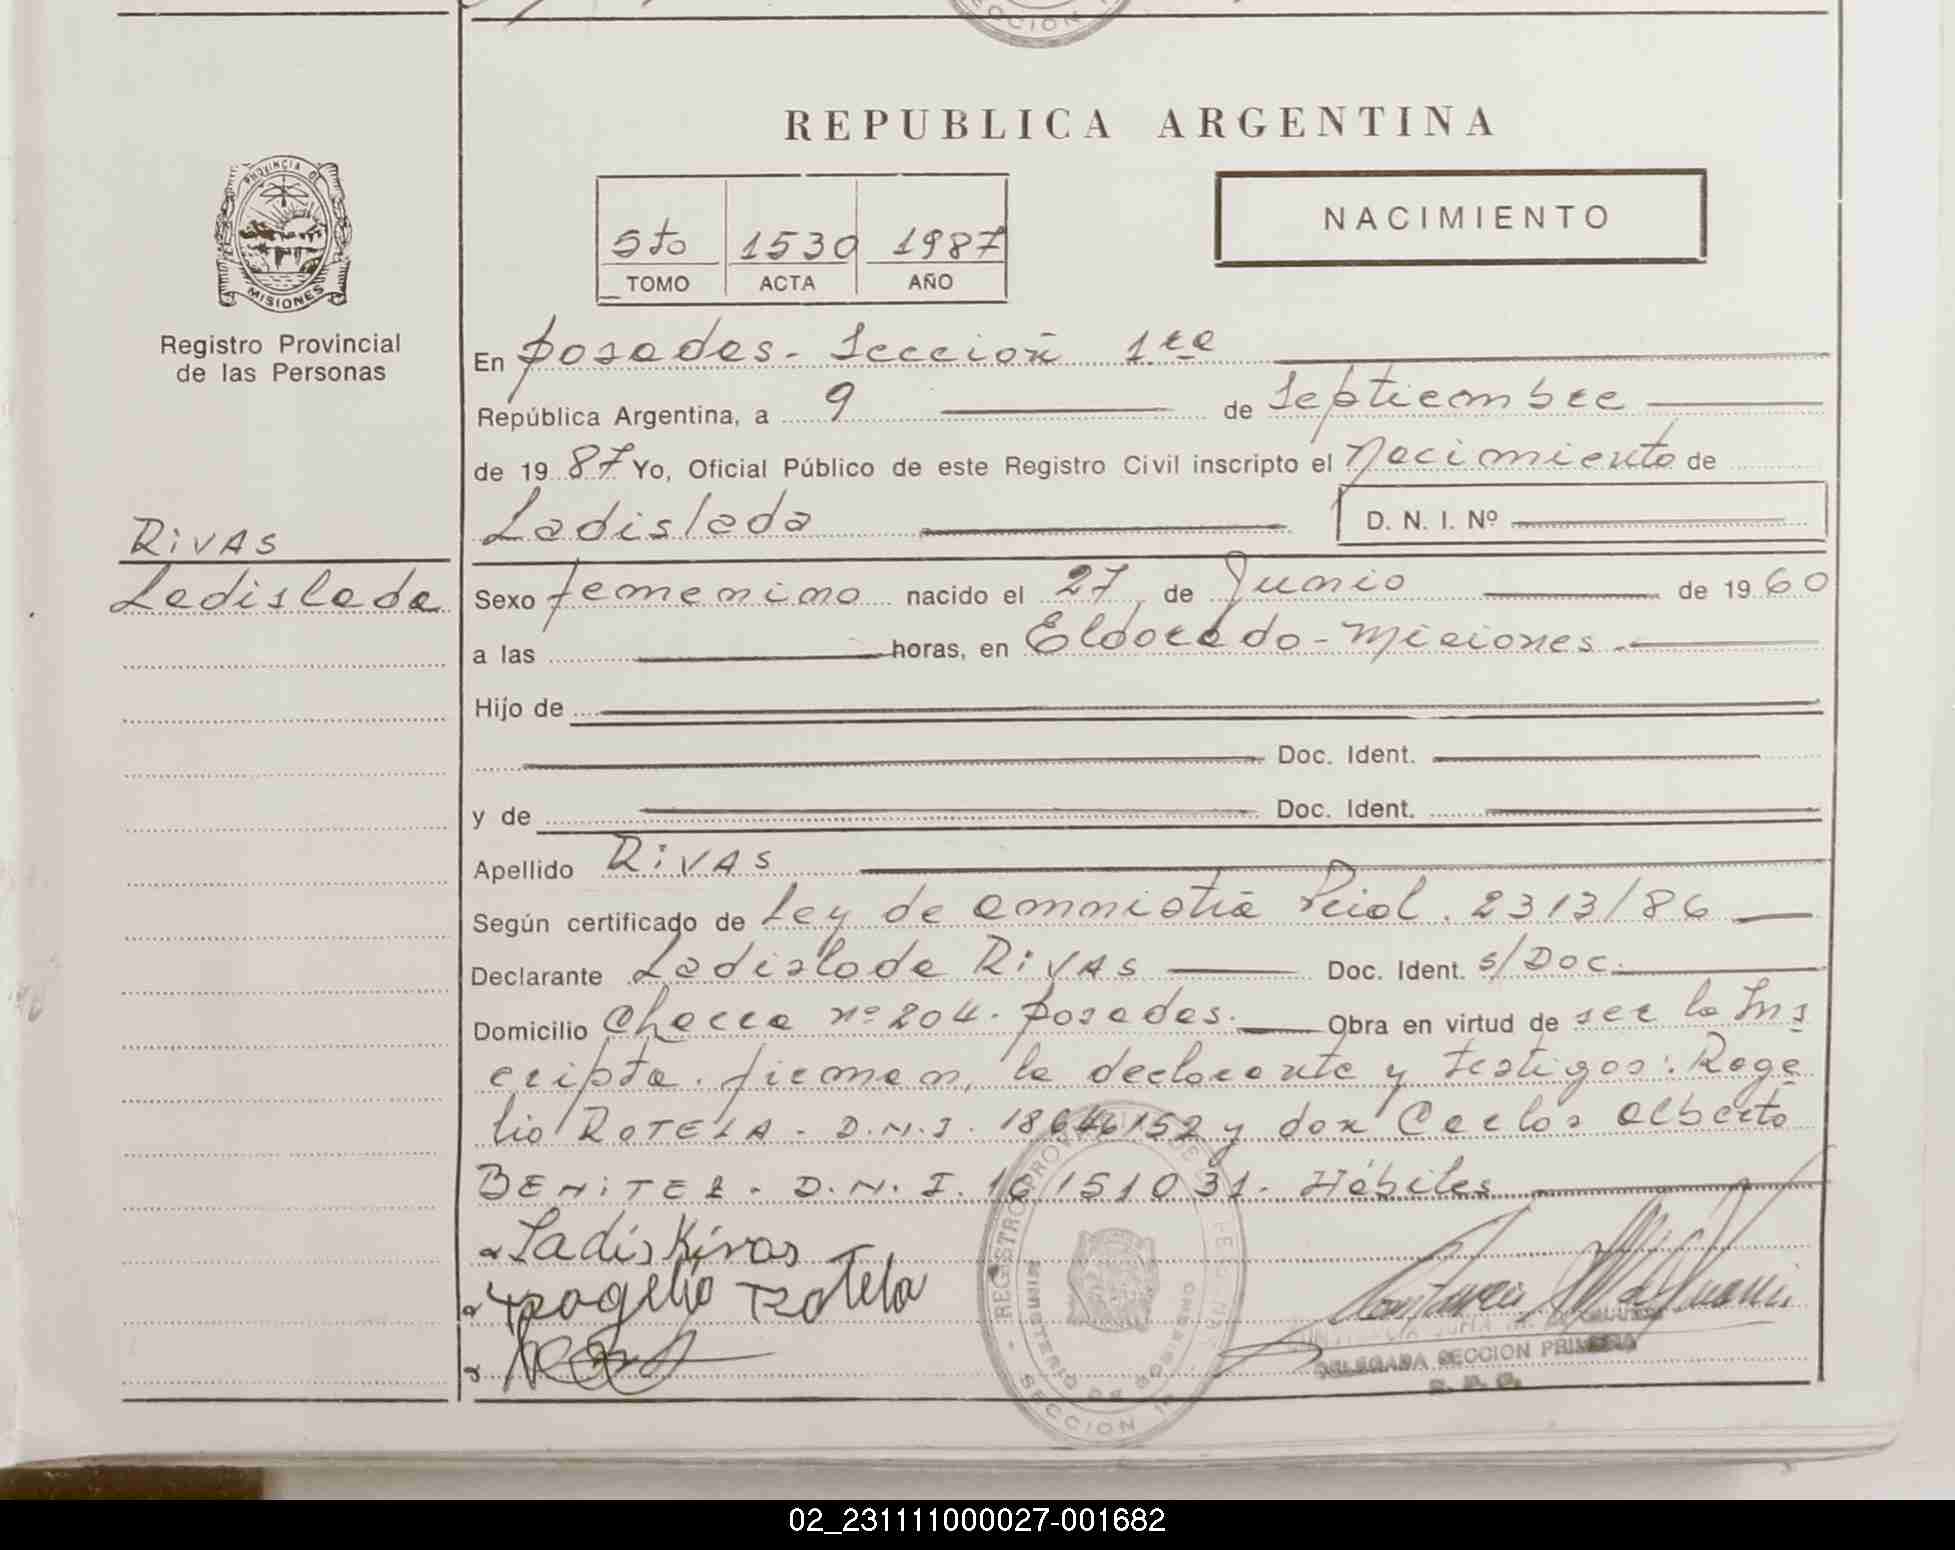 SECCION 1
REPUBLICA ARGENTINA
PROVINCIA DE
MISIONES
Registro Provincial
de las Personas
5to 1530 1987
TOMO ACTA AÑO
NACIMIENTO
En Posadas - Sección 1ra
República Argentina, a 9 de Septiembre
de 1987 Yo, Oficial Público de este Registro Civil inscripto el Nacimiento de
Ladislada D. N. I. Nº
RIVAS
Ladislada
Sexo femenino nacido el 27 de Junio de 1960
a las horas, en Eldorado - Misiones.
Hijo de
Doc. Ident.
y de Doc. Ident.
Apellido RIVAS
Según certificado de Ley de amnistia Pcial. 2313/86
Declarante Ladislada RIVAS Doc. Ident. s/Doc.
Domicilio Chacra nº 204. Posadas. Obra en virtud de ser la Ins
cripta. firman, la declarante y testigos: Roge
lio ROTELA - D.N.I. 18646152 y don Carlos Alberto
BENITEZ - D.N.I. 16151031. Hábiles
Ladis Rivas
Rogelio Rotela
REGISTRO PROVINCIAL DE LAS PERSONAS
MINISTERIO DE GOBIERNO
SECCION 1ª
DELEGADA SECCION PRIMERA
02_231111000027-001682